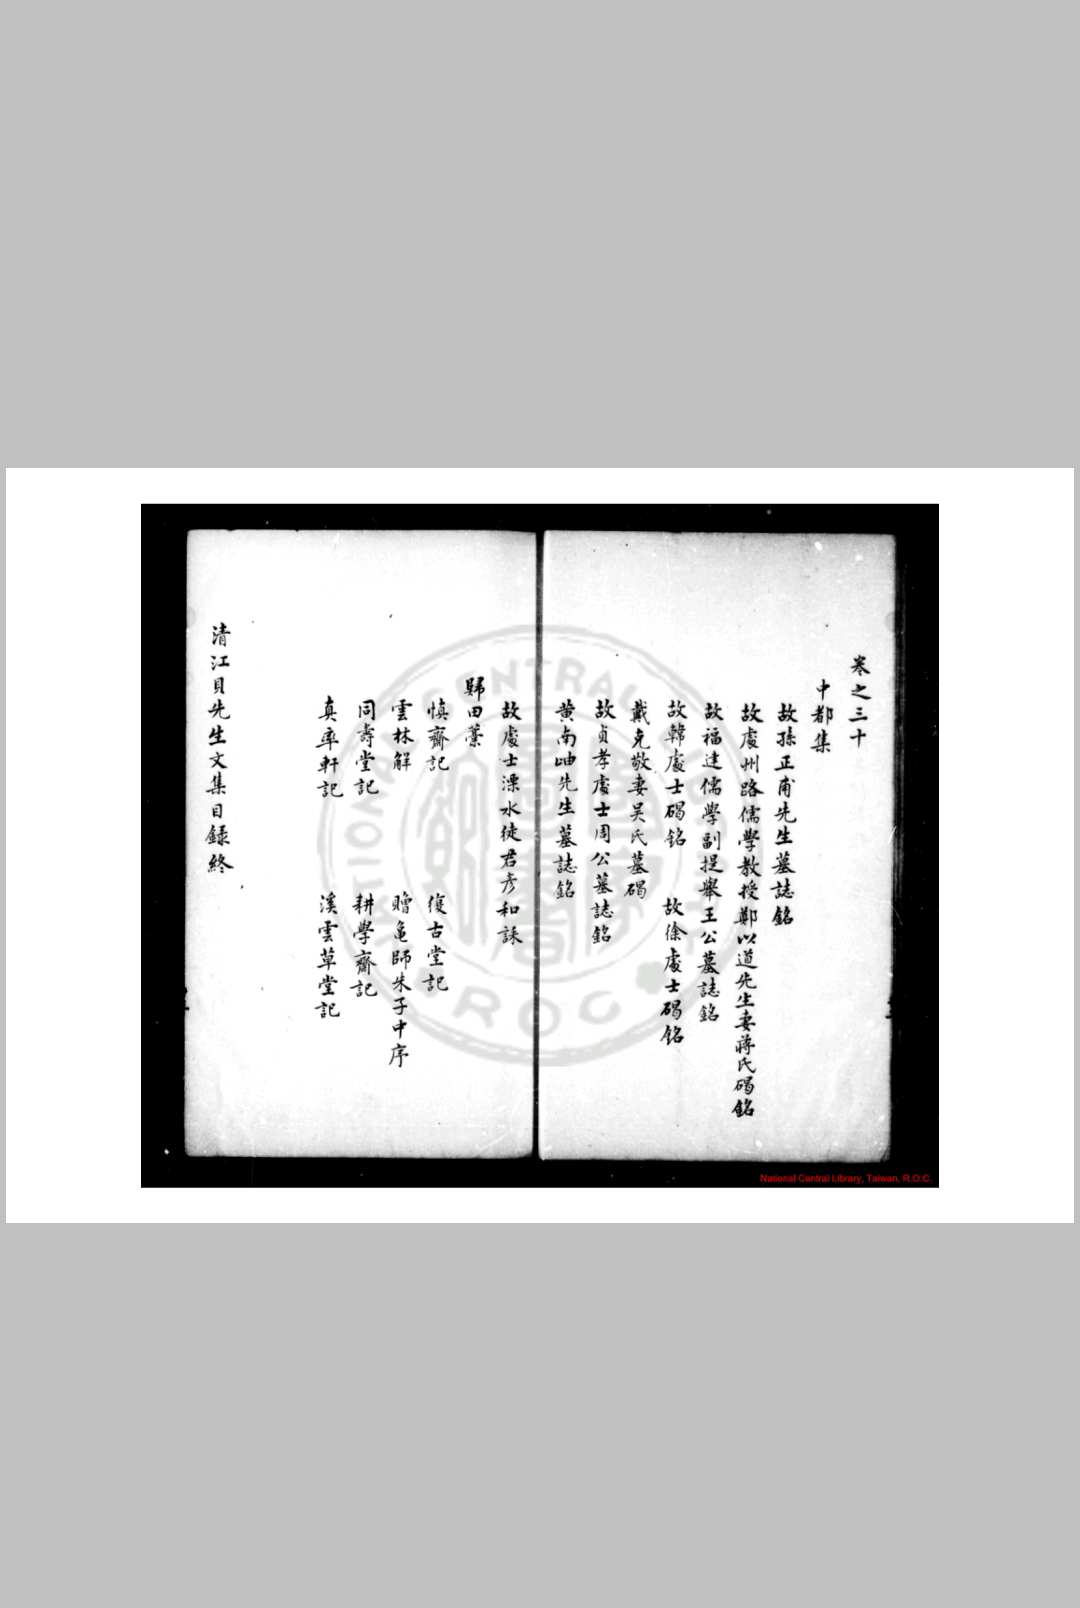 卷之三十
中都集
故孫正甫先生墓誌銘
故處州路儒學教授鄭以道先生妻蔣氏碣銘
故福建儒學副提舉王公墓誌銘
故韓處士碣銘 故徐處士碣銘
戴克敬妻吴氏墓碣
故貞孝處士周公墓誌銘
黄南岫先生墓誌銘
故處士溧水徒君彦和誄
歸田藁
慎齋記 復古堂記
雲林解 贈龜師朱子中序
同壽堂記 耕學齋記
真率軒記 溪雲草堂記
清江貝先生文集目録終
NATIONAL CENTRAL LIBRARY
R.O.C.
National Central Library, Taiwan, R.O.C.